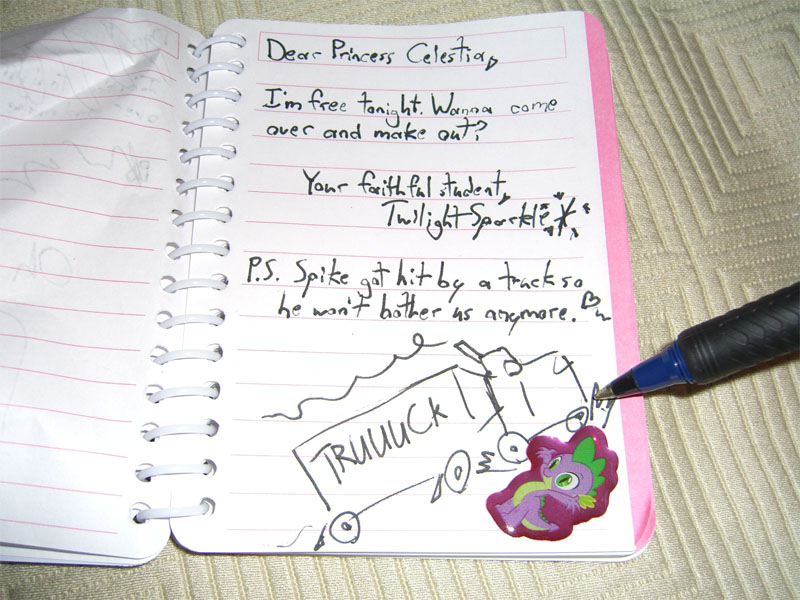 Dear Princess Celestia,
I'm free tonight. Wanna come
over and make out?
Your faithful student,
Twilight Sparkle
P.S. Spike got hit by a truck so
he won't bother us anymore.
TRUUUCK